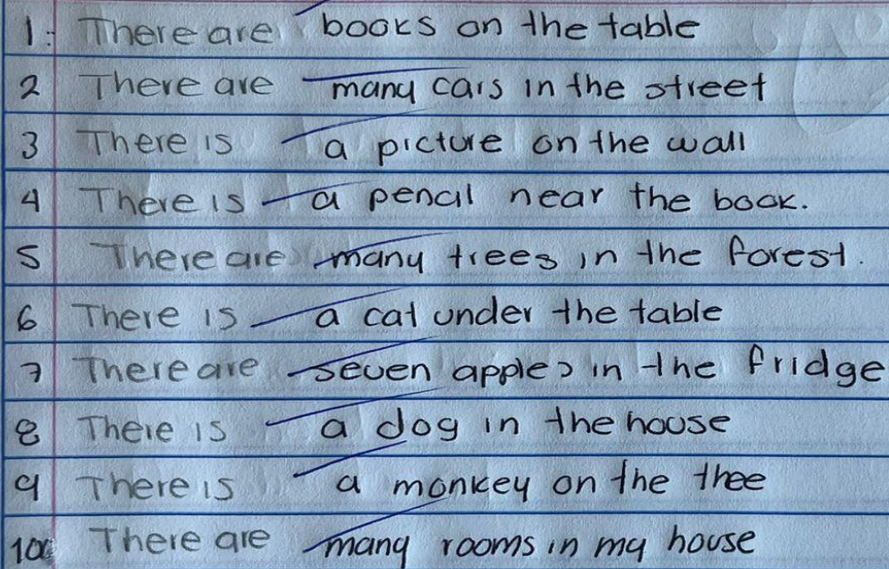 1. There are books on the table
2 There are many cars in the street
3 There is a picture on the wall
4 There is a pencil near the book.
5 There are many trees in the forest.
6 There is a cat under the table
7 There are seven apples in the fridge
8 There is a dog in the house
9 There is a monkey on the thee
10 There are many rooms in my house